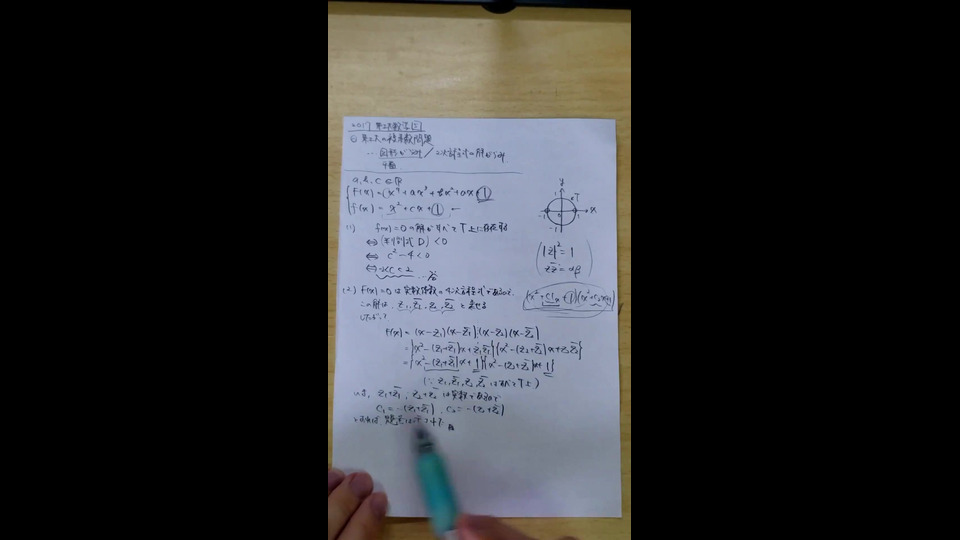 2017 第2次数学 三
複素数問題
図形が / 二次方程式の解が
平面
a, b, c ∈ R
F(x) = x⁴ + ax³ + bx² + ax + 1
f(x) = x² + cx + 1 ←
(1) f(x) = 0 の解がすべて T 上に存在する
⇔ (判別式 D) < 0
⇔ c² - 4 < 0
⇔ -2 < c < 2
(2) F(x) = 0 は実数係数の4次方程式であるので
この解は z₁, z̄₁, z₂, z̄₂ と表せる
したがって
F(x) = (x - z₁)(x - z̄₁)(x - z₂)(x - z̄₂)
= {x² - (z₁ + z̄₁)x + z₁z̄₁}{x² - (z₂ + z̄₂)x + z₂z̄₂}
= {x² - (z₁ + z̄₁)x + 1}{x² - (z₂ + z̄₂)x + 1}
(∵ z₁, z̄₁, z₂, z̄₂ はすべて T 上)
z₁ + z̄₁, z₂ + z̄₂ は実数であるので
c₁ = -(z₁ + z̄₁), c₂ = -(z₂ + z̄₂)
とすれば 題意は
y
1
T
-1 0 1 x
-1
|z|² = 1
z z̄ = αβ
(x² + c₁x + 1)(x² + c₂x + 1)